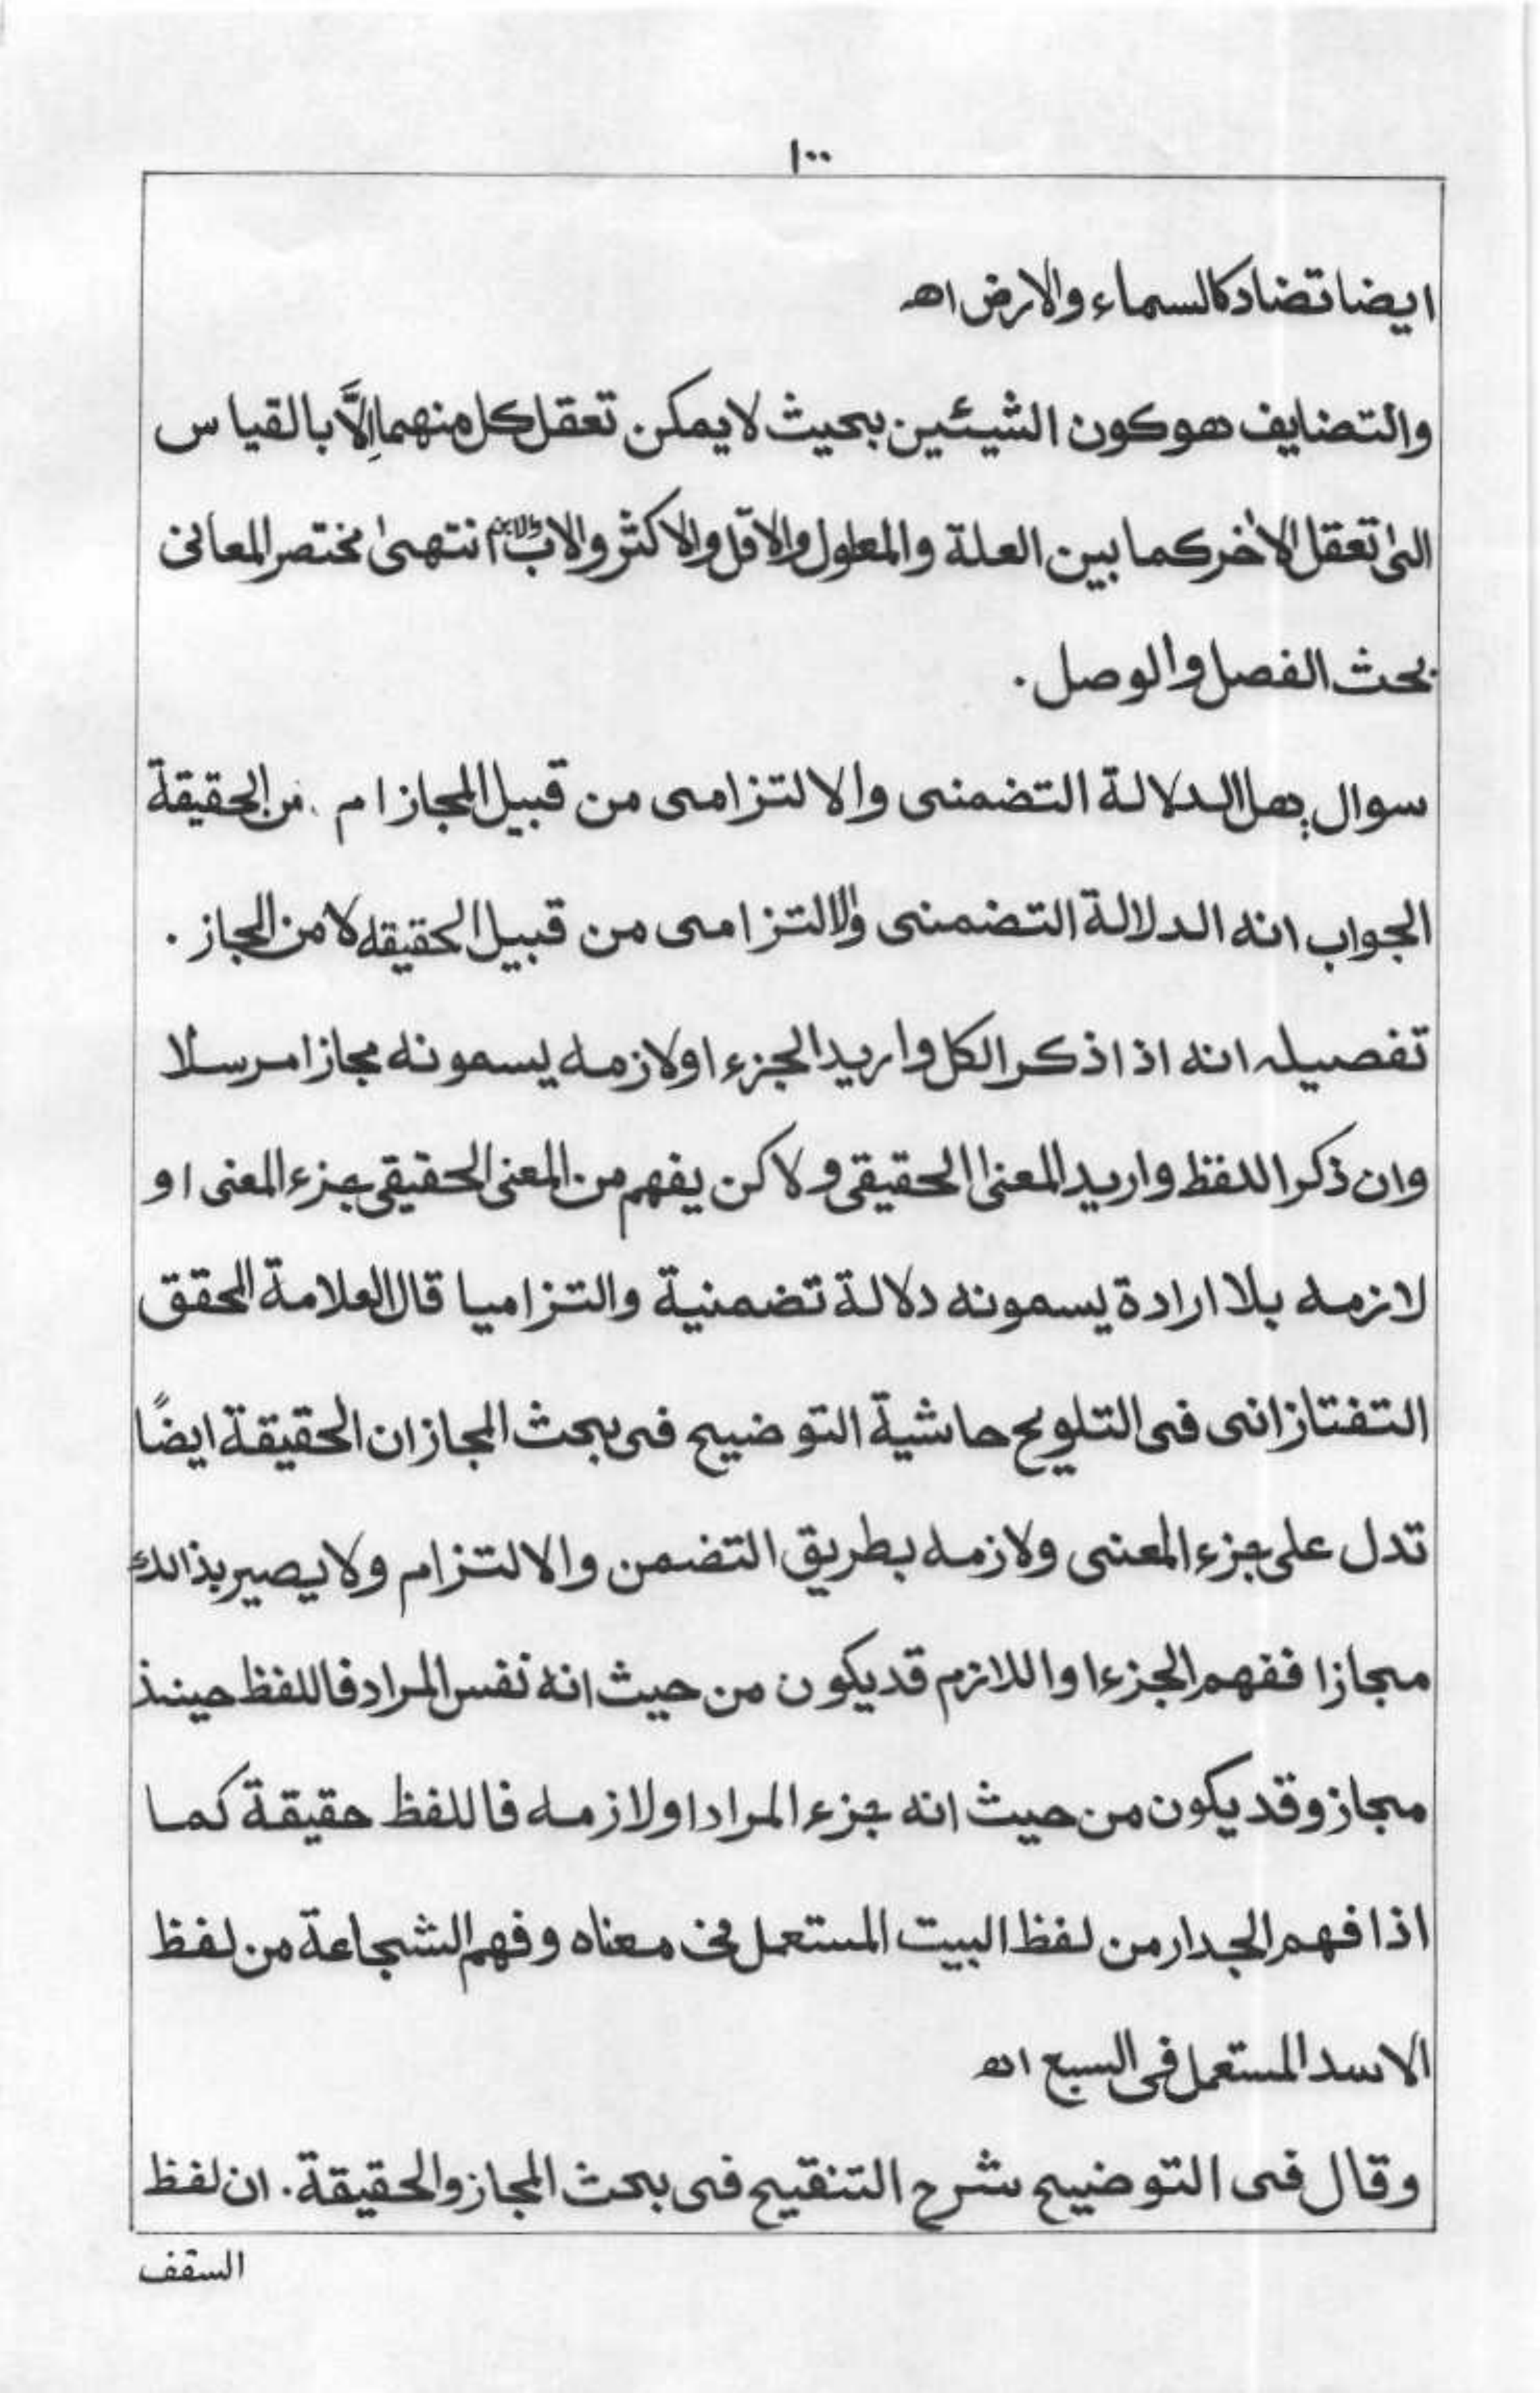 ١٠٠
ايضا تضاد كالسماء والارض اھ
والتضايف هو كون الشيئين بحيث لا يمكن تعقل كل منهما إلَّا بالقياس
الىٰ تعقل الاٰخر كما بين العلة والمعلول والاقل والاكثر والاب والابن انتهىٰ مختصر المعانى
بحث الفصل والوصل .
سوال هل الدلالة التضمنى والالتزامى من قبيل المجاز ام من الحقيقة
الجواب انه الدلالة التضمنى والالتزامى من قبيل الحقيقه لا من المجاز .
تفصيله انه اذا ذكر الكل واريد الجزء او لازمه يسمونه مجازا مرسلا
وان ذكر اللفظ واريد المعنىٰ الحقيقى ولاكن يفهم من المعنى الحقيقى جزء المعنى او
لازمه بلا ارادة يسمونه دلالة تضمنية والتزاميا قال العلامة المحقق
التفتازانى فى التلويح حاشية التوضيح فى بحث المجاز ان الحقيقة ايضًا
تدل على جزء المعنى ولازمه بطريق التضمن والالتزام ولا يصير بذالك
مجازا ففهم الجزء او اللازم قد يكون من حيث انه نفس المراد فاللفظ حينئذ
مجاز وقد يكون من حيث انه جزء المراد او لازمه فاللفظ حقيقة كما
اذا فهم الجدار من لفظ البيت المستعمل فى معناه وفهم الشجاعة من لفظ
الاسد المستعمل فى السبع اھ
وقال فى التوضيح شرح التنقيح فى بحث المجاز والحقيقة. ان لفظ
السقف